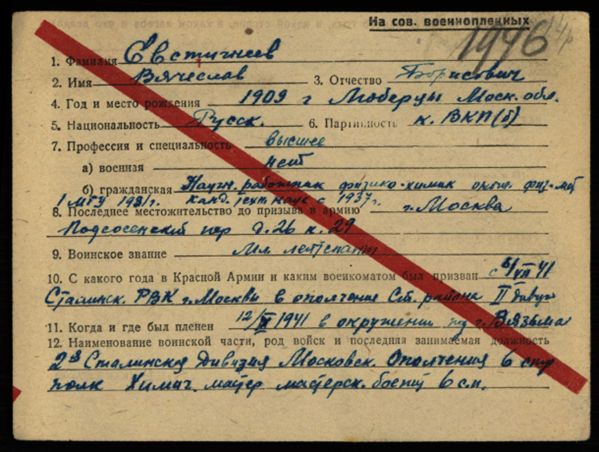 На сов. военнопленных
1946
1. Фамилия Евстигнеев
2. Имя Вячеслав 3. Отчество Борисович
4. Год и место рождения 1909 г Люберцы Моск. обл.
5. Национальность Русск. 6. Партийность к. ВКП(б)
7. Профессия и специальность высшее
а) военная нет
б) гражданская Научн. работник физико-химик оконч. физ-мат
1 МГУ 1931г. канд. наук с 1937г.
8. Последнее местожительство до призыва в армию г. Москва
Подсосенский пер д. 26 к. 29
9. Воинское звание Мл лейтенант
10. С какого года в Красной Армии и каким военкоматом был призван с VII 41
Сталинск. РВК г. Москвы в ополчение Ст. района II дивиз
11. Когда и где был пленен 12/X 1941 в окружении под г. Вязьма
12. Наименование воинской части, род войск и последняя занимаемая должность
2я Сталинская дивизия Московск. Ополчения 6 стр
полк Химич. мастер мастерск. боепит